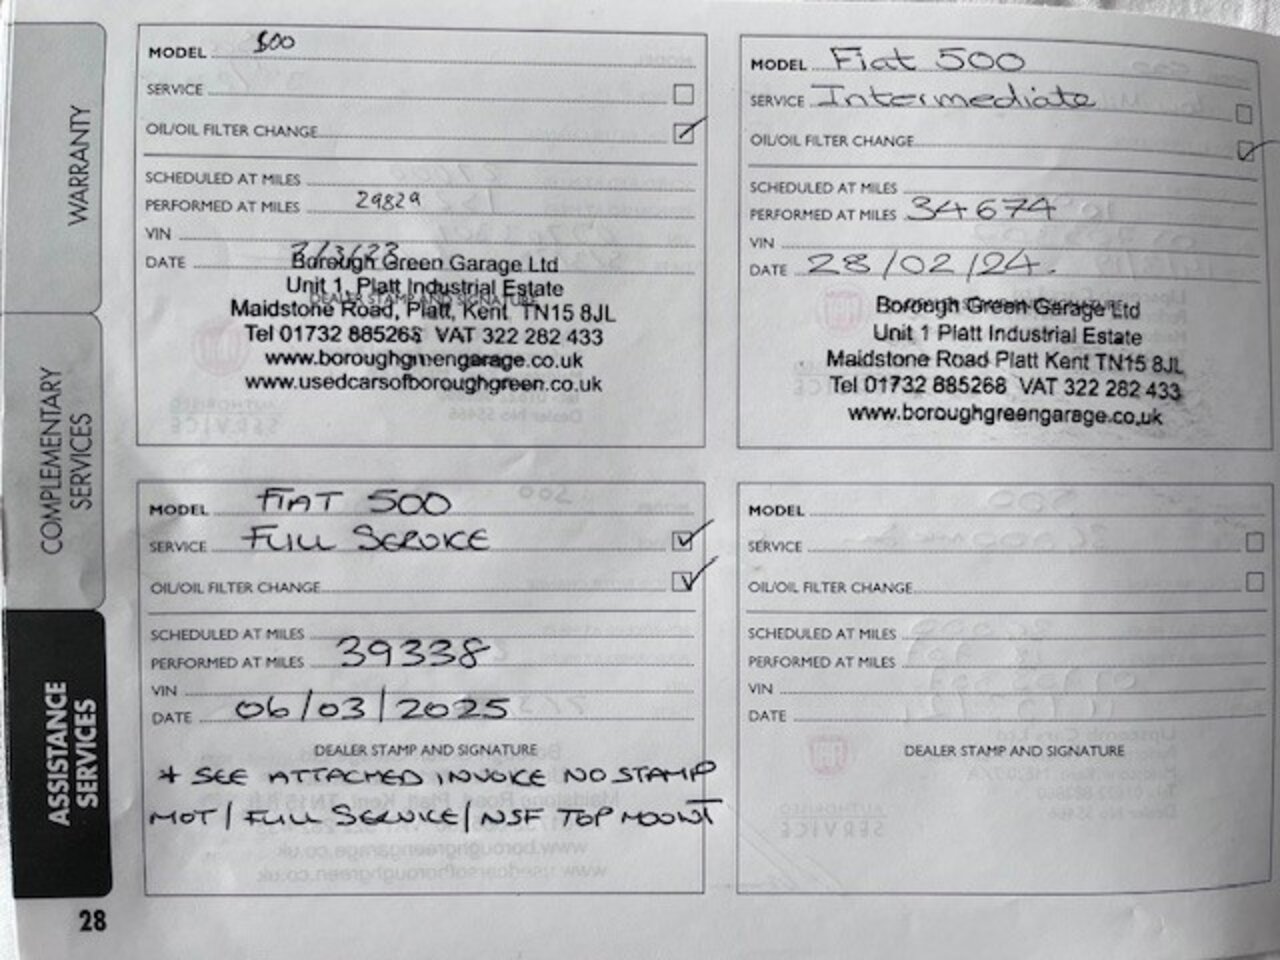 WARRANTY
COMPLEMENTARY
SERVICES
ASSISTANCE
SERVICES
28
MODEL 500
SERVICE
OIL/OIL FILTER CHANGE
SCHEDULED AT MILES
PERFORMED AT MILES 29829
VIN
DATE 2/3/23
DEALER STAMP AND SIGNATURE
Borough Green Garage Ltd
Unit 1, Platt Industrial Estate
Maidstone Road, Platt, Kent TN15 8JL
Tel 01732 885268 VAT 322 282 433
www.boroughgreengarage.co.uk
www.usedcarsofboroughgreen.co.uk
MODEL Fiat 500
SERVICE Intermediate
OIL/OIL FILTER CHANGE
SCHEDULED AT MILES
PERFORMED AT MILES 34674
VIN
DATE 28/02/24.
DEALER STAMP AND SIGNATURE
Borough Green Garage Ltd
Unit 1 Platt Industrial Estate
Maidstone Road Platt Kent TN15 8JL
Tel 01732 885268 VAT 322 282 433
www.boroughgreengarage.co.uk
MODEL FIAT 500
SERVICE FULL SERVICE
OIL/OIL FILTER CHANGE
SCHEDULED AT MILES
PERFORMED AT MILES 39338
VIN
DATE 06/03/2025
DEALER STAMP AND SIGNATURE
* SEE ATTACHED INVOICE NO STAMP
MOT/FULL SERVICE/NSF TOP MOUNT
MODEL
SERVICE
OIL/OIL FILTER CHANGE
SCHEDULED AT MILES
PERFORMED AT MILES
VIN
DATE
DEALER STAMP AND SIGNATURE